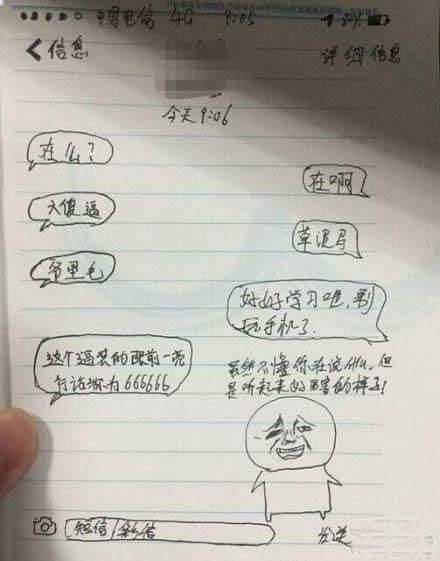 中国电信 4G 9:05
信息 详细信息
今天9:06
在么?
在啊
大傻逼
草泥马
吊毛
好好学习吧,别
玩手机了.
这个逼装的眼前一亮
行话称为666666
虽然不懂你在说什么,但
是听起来好厉害的样子!
短信/彩信
发送